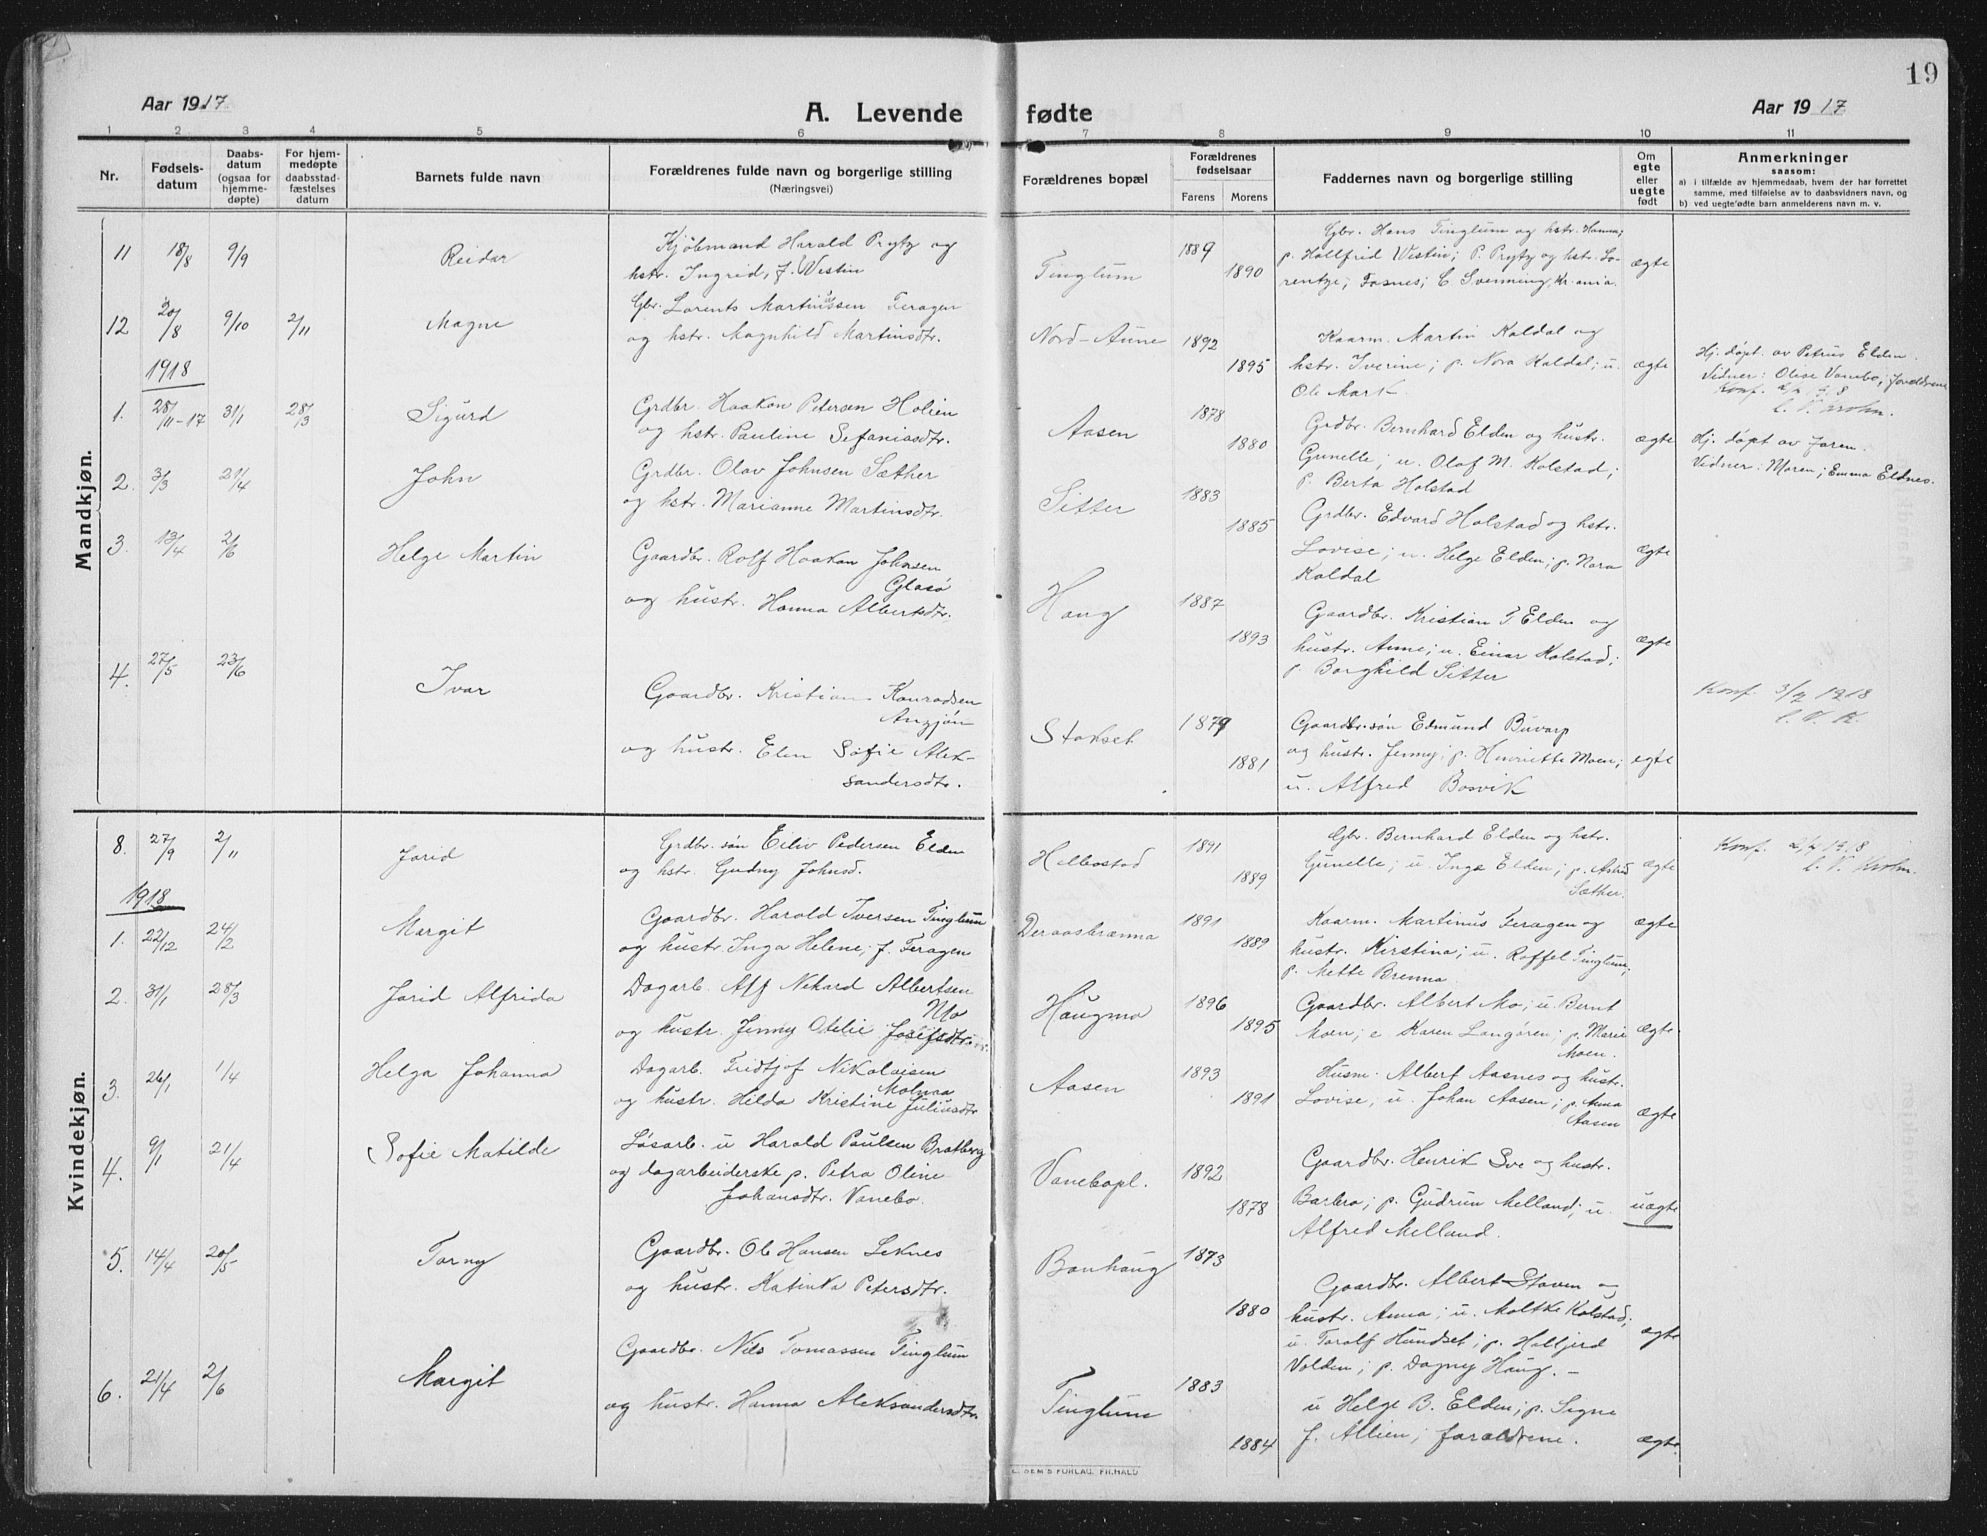 19
Aar 1917.
A. Levende fødte
Aar 1917
1 2 3 4 5 6 7 8 9 10 11
Nr.
Fødsels-
datum
Daabs-
datum
(ogsaa for
hjemme-
døpte)
For hjem-
medøpte
daabsstad-
fæstelses
datum
Barnets fulde navn
Forældrenes fulde navn og borgerlige stilling
(Næringsvei)
Forældrenes bopæl
Forældrenes
fødselsaar
Farens Morens
Faddernes navn og borgerlige stilling
Om
egte
eller
uegte
født
Anmerkninger
saasom:
a) i tilfælde av hjemmedaab, hvem der har forrettet
samme, med tilføielse av to daabsvidners navn, og
b) ved uegtefødte barn anmelderens navn m. v.
Mandkjøn.
11 18/8 9/9 Reidar
Kjøbmand Harald Prytz og
hstr. Ingrid, f. Westin
Tinglum 1889 1890
Gbr. Hans Tinglum og hstr. Hanna;
p. Hallfrid Westin; P. Prytz og hstr. Lo-
rentze; Fosnes; C. Svenning, Kr-ania.
ægte
12 20/8 9/10 2/11 Magne
Gbr. Lorents Martinussen Feragen
og hstr. Magnhild Martinsdtr.
Nord-Aune 1892 1895
Kaarm. Martin Kaldal og
hstr. Iverine; p. Nora Kaldal; u.
Ole Mark.
ægte
Hj. døpt av Petrus Elden.
Vidner: Oline Vanebo; foreldrene
Konf. 2/7 1918
C. V. Krohn.
1918
1. 28/11-17 31/1 28/3 Sigurd
Grdbr. Haakon Petersen Holien
og hstr. Pauline Sefaniasdtr.
Aasen 1878 1880
Grdbr. Bernhard Elden og hustr.
Gunelle; u. Olaf M. Kolstad;
p. Berta Holstad
ægte
Hj. døpt av faren.
Vidner: Moren; Emma Eldnes.
2. 3/3 21/4 John
Grdbr. Olav Johnsen Sæther
og hstr. Marianne Martinsdtr.
Sitter 1883 1885
Grdbr. Edvard Holstad og hstr.
Lovise; u. Helge Elden; p. Nora
Kaldal
ægte
3. 13/4 2/6 Helge Martin
Gaardbr. Rolf Haakon Johnsen
Glasø
og hustr. Hanna Albertsdtr.
Haug 1887 1893
Gaardbr. Kristian T Elden og
hustr. Anne; u. Einar Kolstad;
p. Borghild Sitter
ægte
4. 27/5 23/6 Ivar
Gaardbr. Kristian Konradsen
Angjøn
og hustr. Elen Sofie Alek-
sandersdtr.
Stokset 1879 1881
Gaardbr.søn Edmund Buvarp
og hustr. Jenny; p. Henriette Moen;
u. Alfred Bosvik
egte
Konf. 3/7 1918
C. V. K.
Kvindekjøn.
8. 27/9 2/11 Jorid
Grdbr. søn Eiliv Pedersen Elden
og hstr. Gudny Johnsd.
Helbostad 1891 1889
Gbr. Bernhard Elden og hstr.
Gunelle; u. Inge Elden; p. Astrid
Sæther.
ægte
Konf. 2/7 1918
C. V. Krohn.
1918
1. 22/12 24/2 Margit
Gaardbr. Harald Iversen Tinglum
og hustr. Inga Helene, f. Feragen
Deraasbrænna 1891 1889
Kaarm. Martinus Feragen og
hustr. Kirstina; u. Roffel Tinglum;
p. Mette Brenna
ægte
2. 31/1 28/3 Jorid Alfrida
Dagarb. Alf Nekard Albertsen
Mo
og hustr. Jenny Otelie Josefsdtr.
Haugmo 1896 1895
Gaardbr. Albert Mo; u. Bernt
Moen; e Karen Langøren; p. Marie
Moen.
ægte
3. 26/1 1/4 Helga Johanna
Dagarb. Fridtjof Nikolaisen
Molnaa
og hustr. Hilda Kristine Juliusdtr
Aasen 1893 1891
Husm. Albert Aasnes og hustr.
Lovise; u. Johan Aasen; p. Anna
Aasen
ægte
4. 9/1 21/4 Sofie Matilde
Løsarb. u Harald Paulsen Bratberg
og dagarbeiderske p. Petra Oline
Johansdtr. Vanebo.
Vanebopl. 1892 1878
Gaardbr. Henrik Sve og hustr.
Barbro; p. Gudrun Melland; u.
Alfred Melland.
uægte
5. 14/4 20/5 Torny
Gaardbr. Ole Hansen Leknes
og hustr. Katinka Petersdtr.
Bonhaug 1873 1880
Gaardbr. Albert Staven og
hustr. Anna; u. Moltke Kolstad;
u. Toralf Hundset; p. Halljerd
Volden; p. Dagny Haug. -
ægte
6. 21/4 2/6 Margit
Gaardbr. Nils Tomassen Tinglum
og hustr. Hanna Aleksandersdtr.
Tinglum 1883 1884
u Helge B. Elden; p. Signe
J. Allien; foraldrene.
ægte.